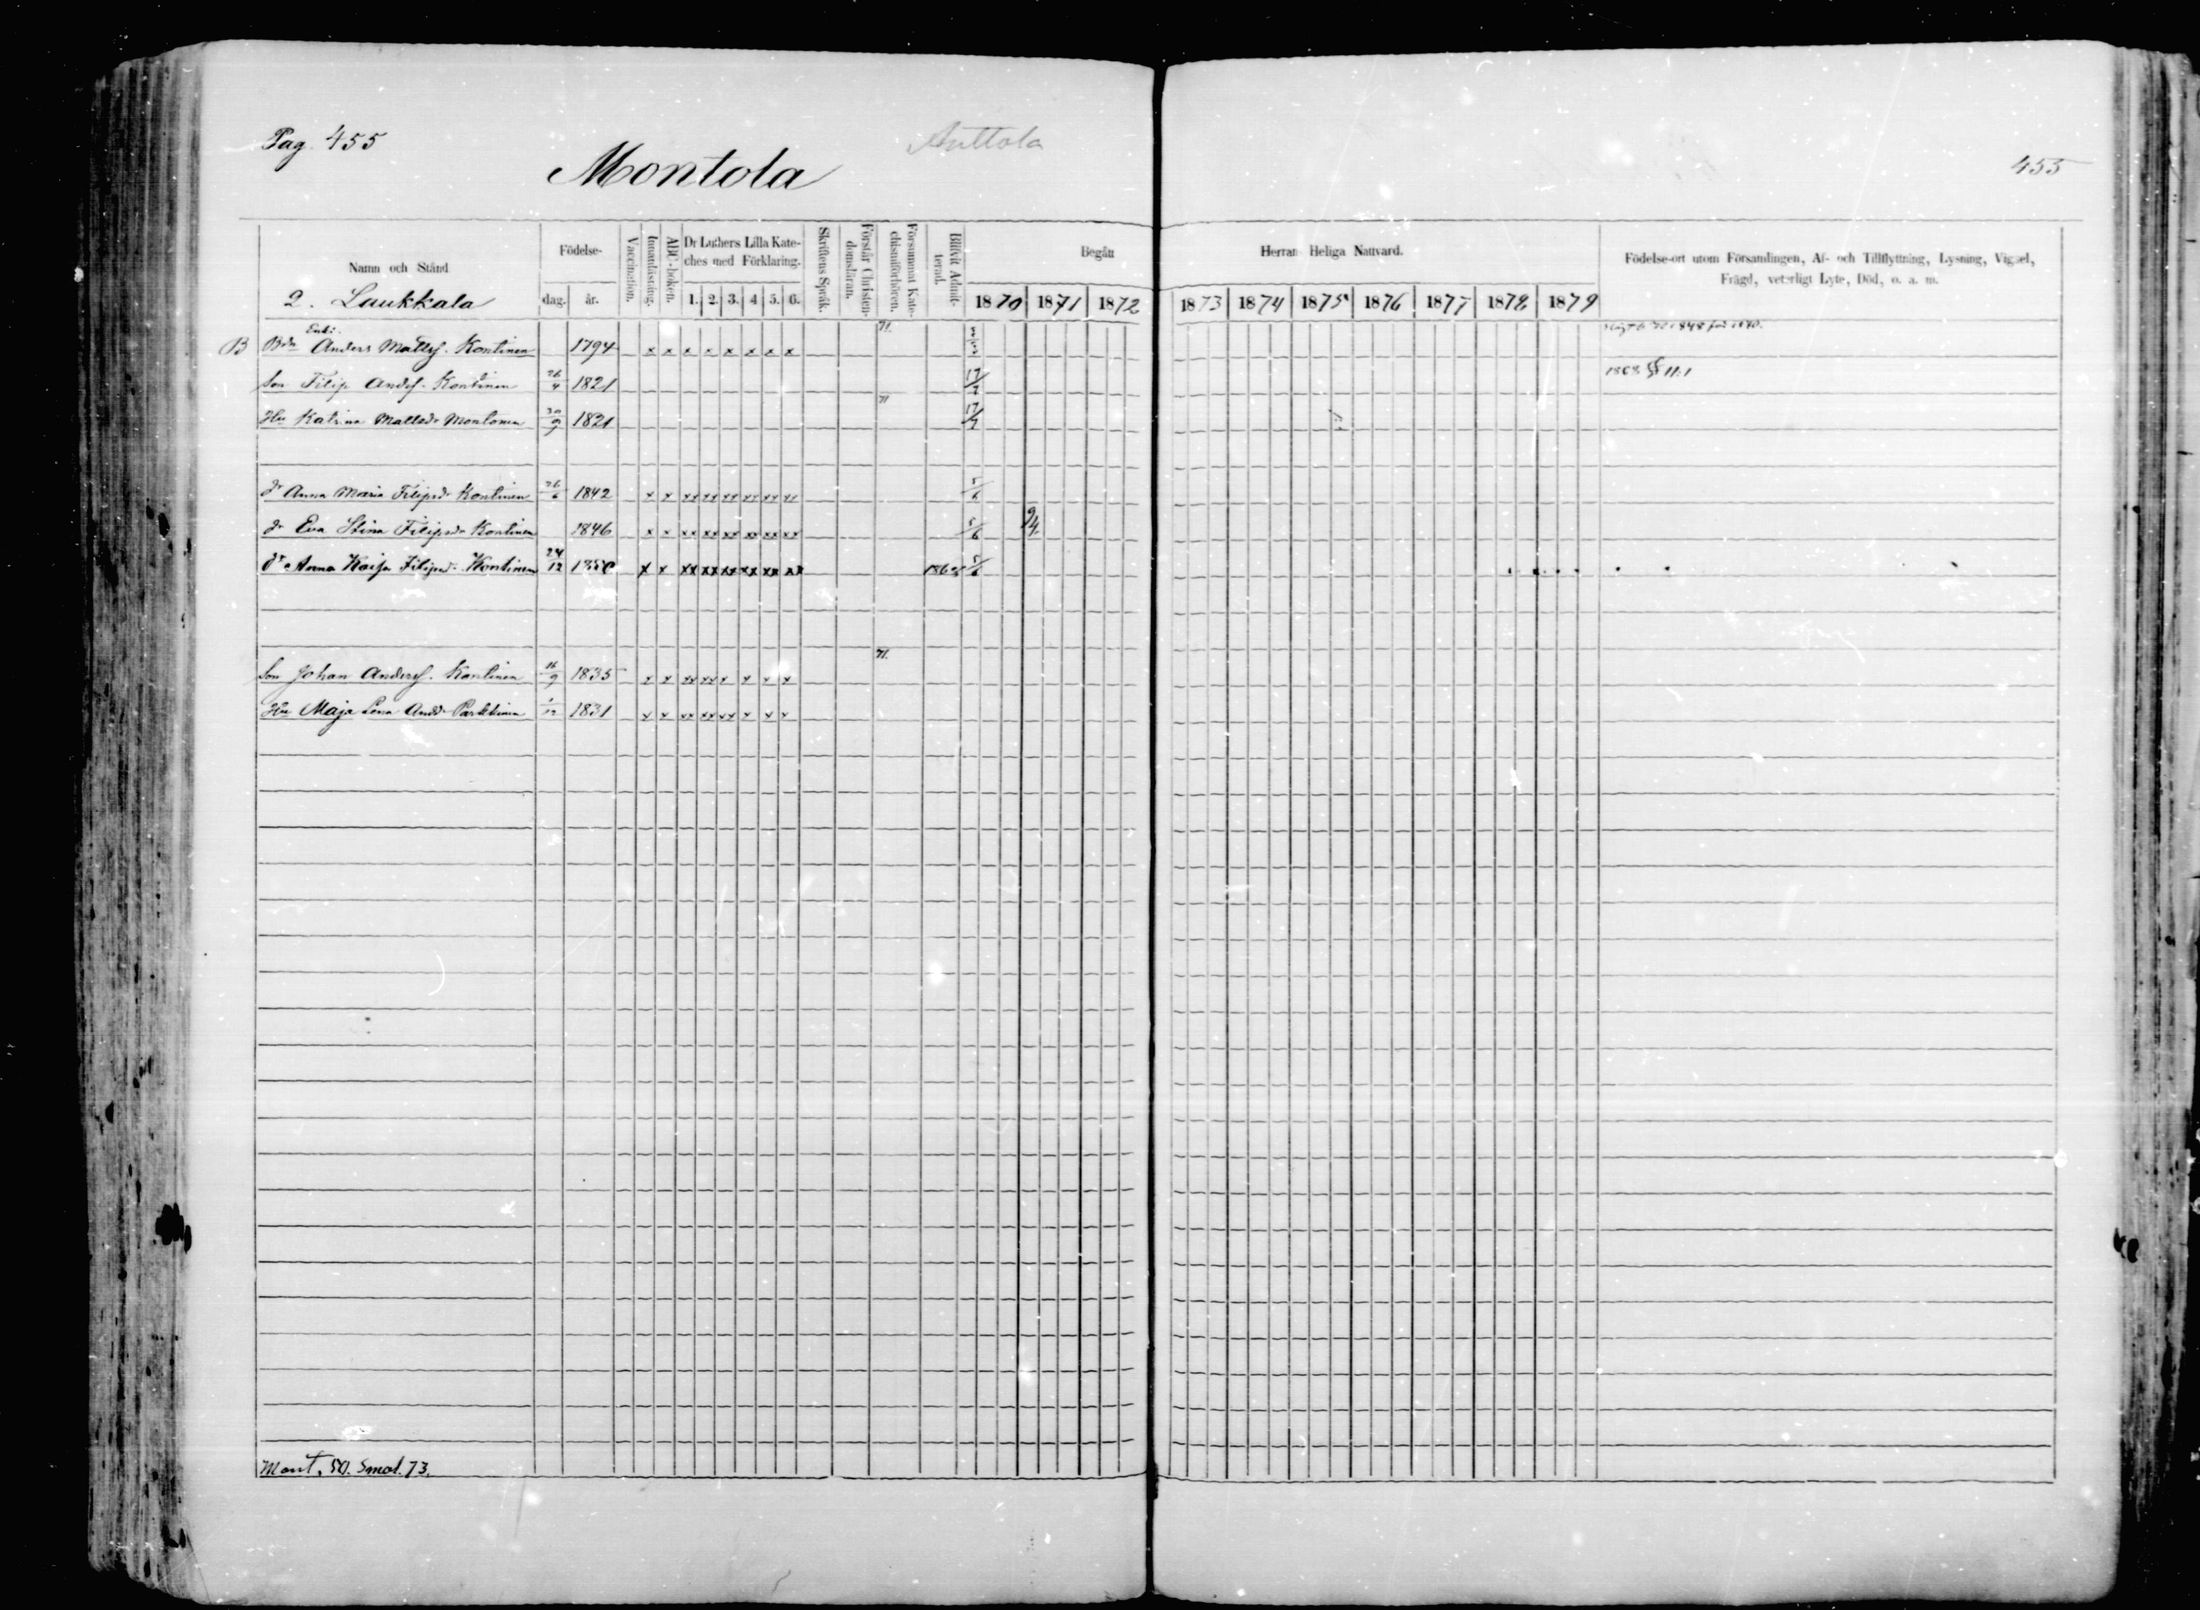 Pag. 455
Anttola
Montola
455
Namn och Stånd
Födelse-
dag. år.
Vaccination.
Innanläsning.
ABC-boken.
Dr Luthers Lilla Kate-
ches med Förklaring.
1. 2. 3. 4 5. 6.
Skriftens Språk.
Förstår Christen-
domsläran.
Försummat Kate-
chismiförhören.
Blifvit Admit-
terad.
Begått
Herrans Heliga Nattvard.
1870 1871 1872 1873 1874 1875 1876 1877 1878 1879
Födelse-ort utom Församlingen, Af- och Tillflyttning, Lysning, Vigsel,
Frägd, veterligt Lyte, Död, o. a. m.
2. Laukkala
Enkl:
B Bdn Anders Mattsf. Kontinen 1794 x x x x x x x x 71.
Son Filip Andsf. Kontinen 26/4 1821 17/7 1868 § 11:1
Hu Katrina Mattsdr Montonen 30/9 1821 71 17/7
dr Anna Maria Filipsdr Kontinen 26/6 1842 x x xx xx xx xx xx xx 5/6
dr Eva Stina Filipsdr Kontinen 1846 x x xx xx xx xx xx xx 5/6 9/4
dr Anna Kaisa Filipsd. Kontinen 24/12 1850 x x xx xx xx xx xx xx 5/6
Son Johan Andersf. Kontinen 16/9 1835 x x xx xx x x x x 71.
Hu Maja Lena Andsdr Parkkinen 1/12 1831 x x xx xx xx x x x
Mont. 50. Smol. 73.